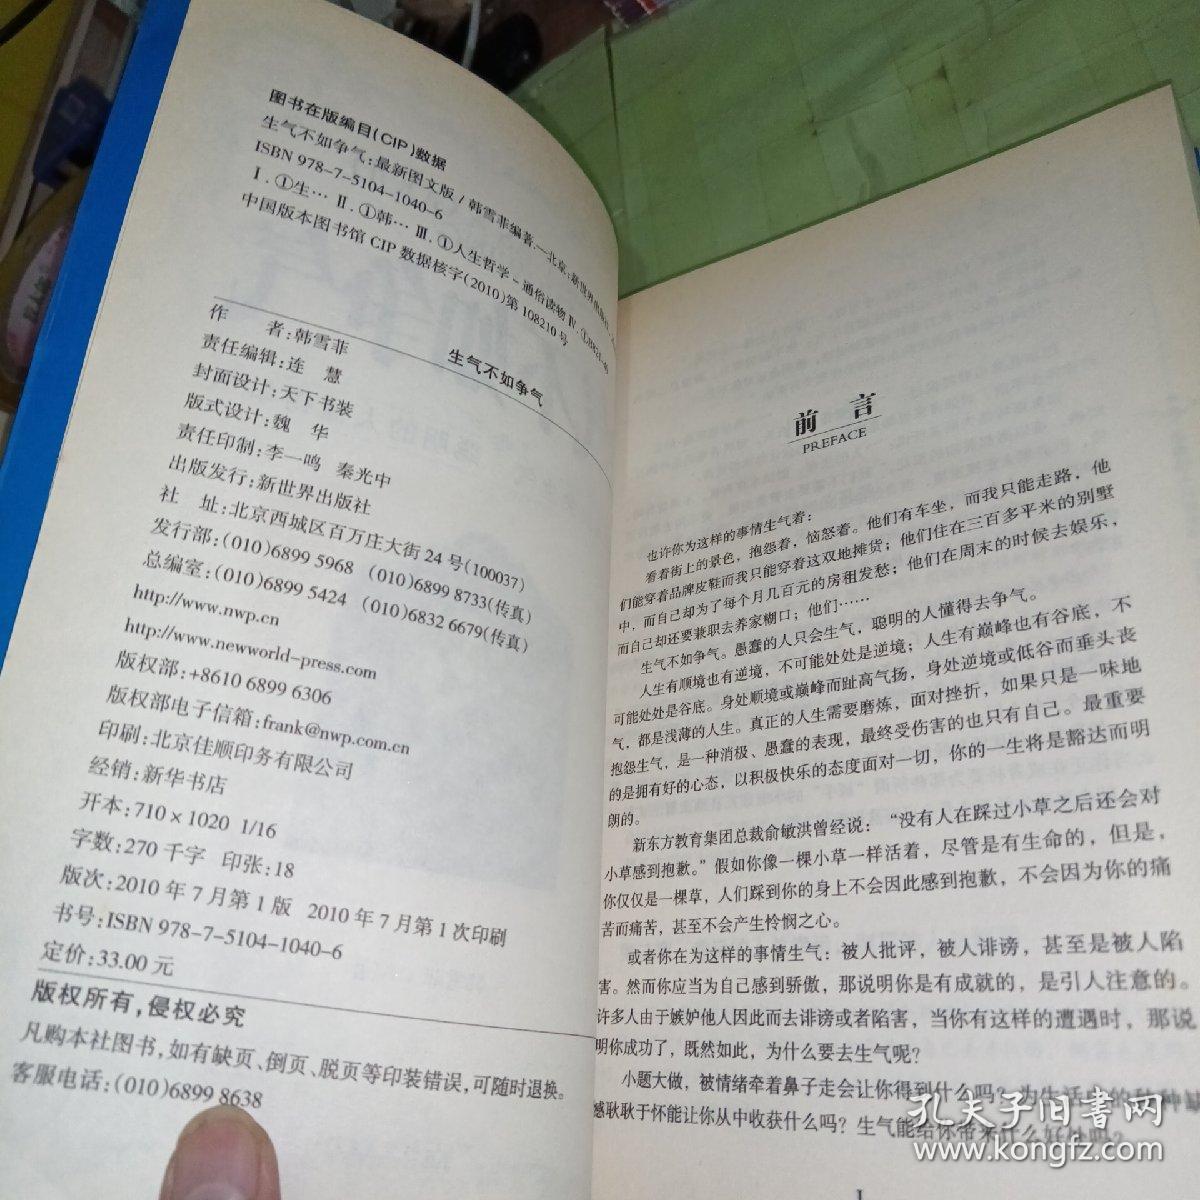 图书在版编目(CIP)数据
生气不如争气:最新图文版/韩雪菲编著.—北京:新世界出版社
ISBN 978-7-5104-1040-6
Ⅰ.①生… Ⅱ.①韩… Ⅲ.①人生哲学-通俗读物 Ⅳ.①B821-49
中国版本图书馆CIP数据核字(2010)第108210号
生气不如争气
作 者:韩雪菲
责任编辑:连 慧
封面设计:天下书装
版式设计:魏 华
责任印制:李一鸣 秦光中
出版发行:新世界出版社
社 址:北京西城区百万庄大街24号(100037)
发行部:(010)6899 5968 (010)6899 8733(传真)
总编室:(010)6899 5424 (010)6832 6679(传真)
http://www.nwp.cn
http://www.newworld-press.com
版权部:+8610 6899 6306
版权部电子信箱:frank@nwp.com.cn
印刷:北京佳顺印务有限公司
经销:新华书店
开本:710×1020 1/16
字数:270千字 印张:18
版次:2010年7月第1版 2010年7月第1次印刷
书号:ISBN 978-7-5104-1040-6
定价:33.00元
版权所有,侵权必究
凡购本社图书,如有缺页、倒页、脱页等印装错误,可随时退换。
客服电话:(010)6899 8638
前言
PREFACE
也许你为这样的事情生气着:
看着街上的景色,抱怨着,恼怒着。他们有车坐,而我只能走路,他
们能穿着品牌皮鞋而我只能穿着这双地摊货;他们住在三百多平米的别墅
中,而自己却为了每个月几百元的房租发愁;他们在周末的时候去娱乐,
而自己却还要兼职去养家糊口;他们……
生气不如争气。愚蠢的人只会生气,聪明的人懂得去争气。
人生有顺境也有逆境,不可能处处是逆境;人生有巅峰也有谷底,不
可能处处是谷底。身处顺境或巅峰而趾高气扬,身处逆境或低谷而垂头丧
气,都是浅薄的人生。真正的人生需要磨炼,面对挫折,如果只是一味地
抱怨生气,是一种消极、愚蠢的表现,最终受伤害的也只有自己。最重要
的是拥有好的心态,以积极快乐的态度面对一切,你的一生将是豁达而明
朗的。
新东方教育集团总裁俞敏洪曾经说:“没有人在踩过小草之后还会对
小草感到抱歉。”假如你像一棵小草一样活着,尽管是有生命的,但是,
你仅仅是一棵草,人们踩到你的身上不会因此感到抱歉,不会因为你的痛
苦而痛苦,甚至不会产生怜悯之心。
或者你在为这样的事情生气:被人批评,被人诽谤,甚至是被人陷
害。然而你应当为自己感到骄傲,那说明你是有成就的,是引人注意的。
许多人由于嫉妒他人因此而去诽谤或者陷害,当你有这样的遭遇时,那说
明你成功了,既然如此,为什么要去生气呢?
小题大做,被情绪牵着鼻子走会让你得到什么吗?为生活中的种种遗
憾耿耿于怀能让你从中收获什么吗?生气能给你带来什么好处吗?
1
孔夫子旧书网
www.kongfz.com